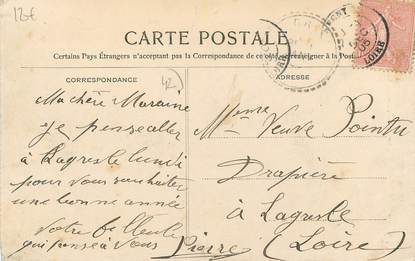 12€
CARTE POSTALE
Certains Pays Étrangers n'acceptent pas la Correspondance de ce côté, se renseigner à la Poste
CORRESPONDANCE
42
ADRESSE
LOIRE
Ma chère Marraine
je pense aller
à Lagresle lundi
pour vous souhaiter
une bonne année
Votre filleule
qui pense à vous
Pierre
Mme Veuve Pointu
Drapière
à Lagresle
(Loire)